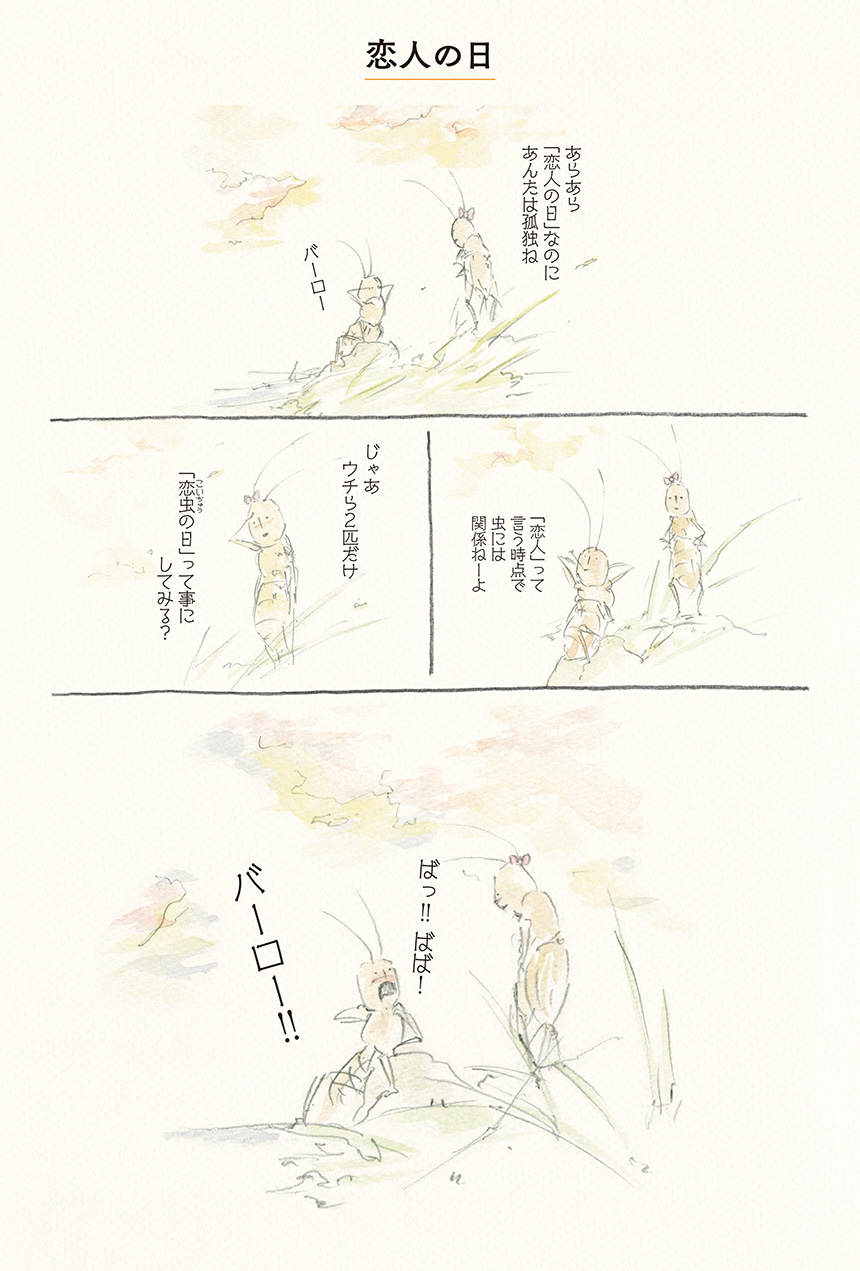 恋人の日
あらあら
「恋人の日」なのに
あんたは孤独ね
バーロー
「恋人」って
言う時点で
虫には
関係ねーよ
じゃあ
ウチら2匹だけ
「恋虫の日」って事に
こいぢゅう
してみる?
ばっ!!ばば!
バーロー!!